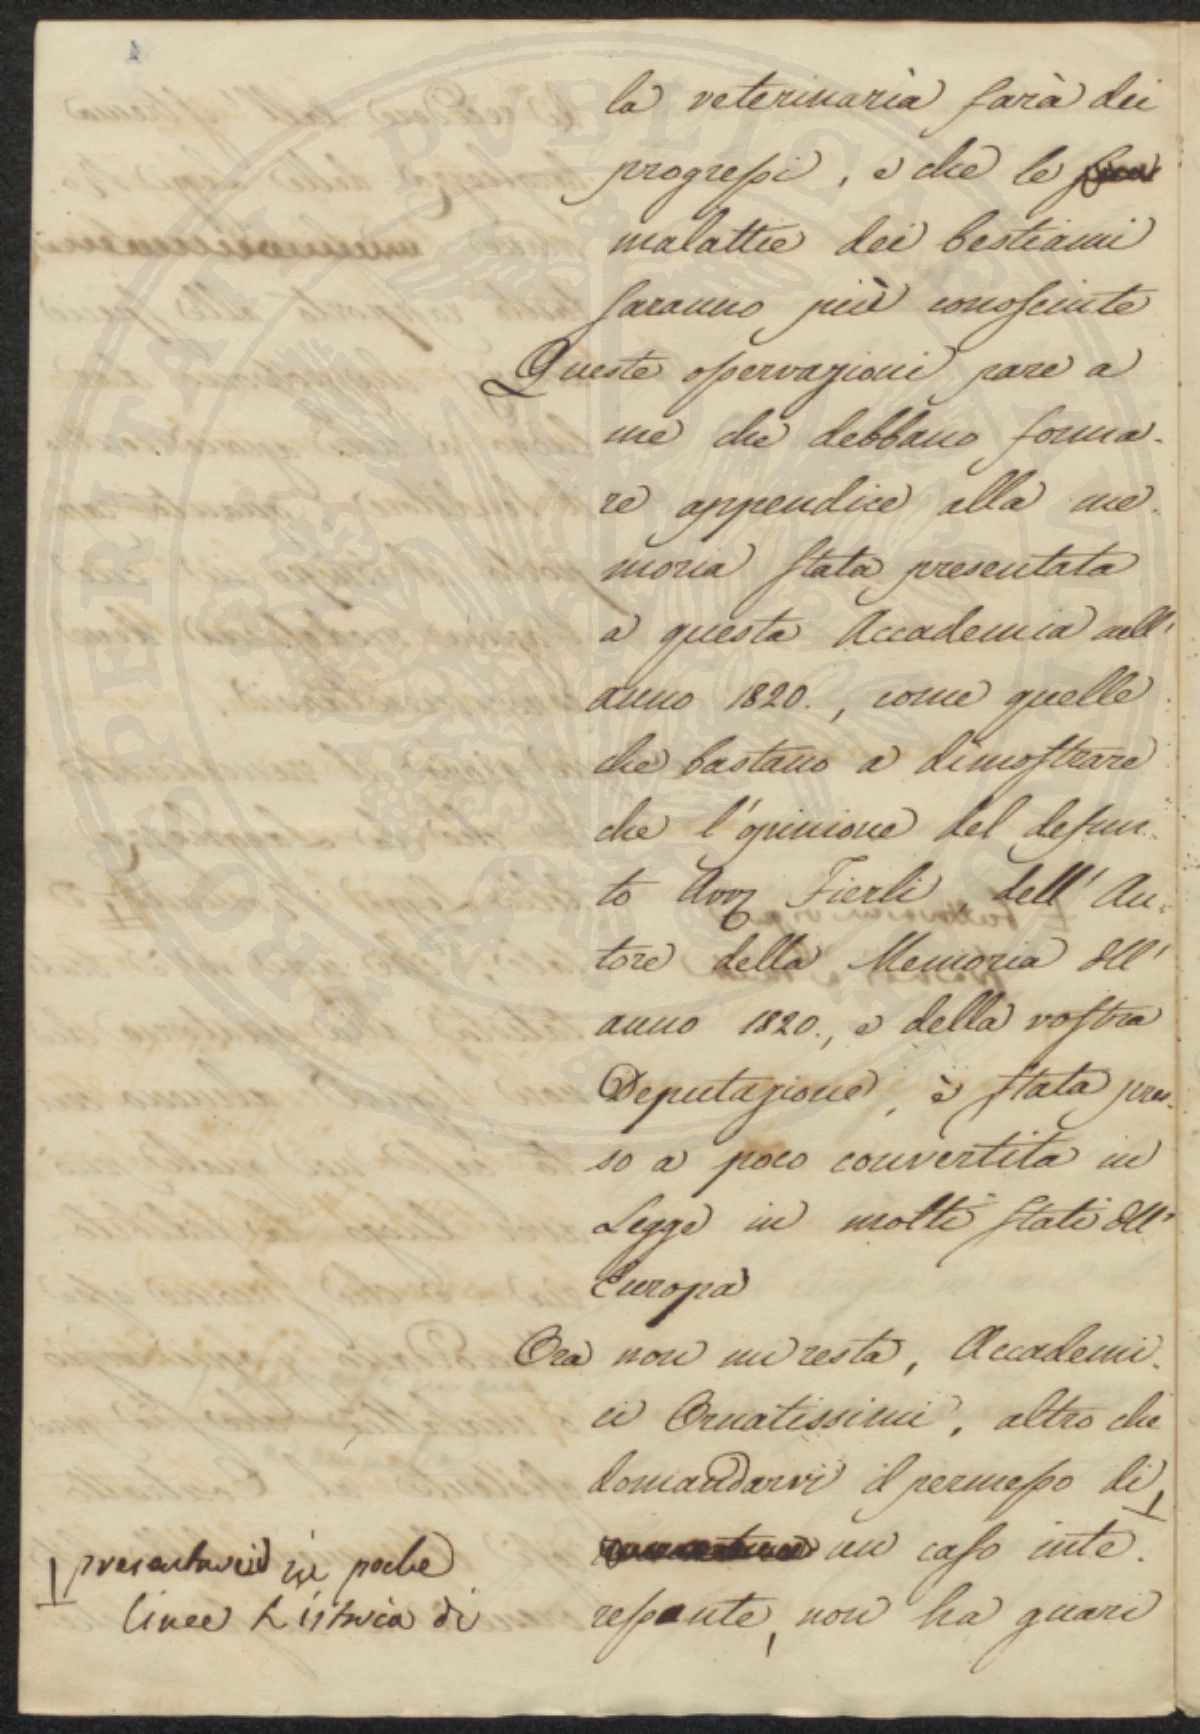 la veterinaria farà dei
progressi, e che le
malattie dei bestiami
saranno più conosciute
Queste osservazioni pare a
me che debbano forma-
re appendice alla me-
moria stata presentata
a questa Accademia nell'
anno 1820., come quelle
che bastano a dimostrare
che l'opinione del defun-
to Avv Fierli dell'Au-
tore della Memoria dell'
anno 1820., e della vostra
Deputazione, è stata pres-
so a poco convertita in
Legge in molti stati dell'
Europa
Ora non mi resta, Accademi-
ci Ornatissimi, altro che
domandarvi il permesso di
un caso inte-
ressante, non ha guari
presentarvi in poche
linee l'istoria di
PROSPERITATI PUBLICAE